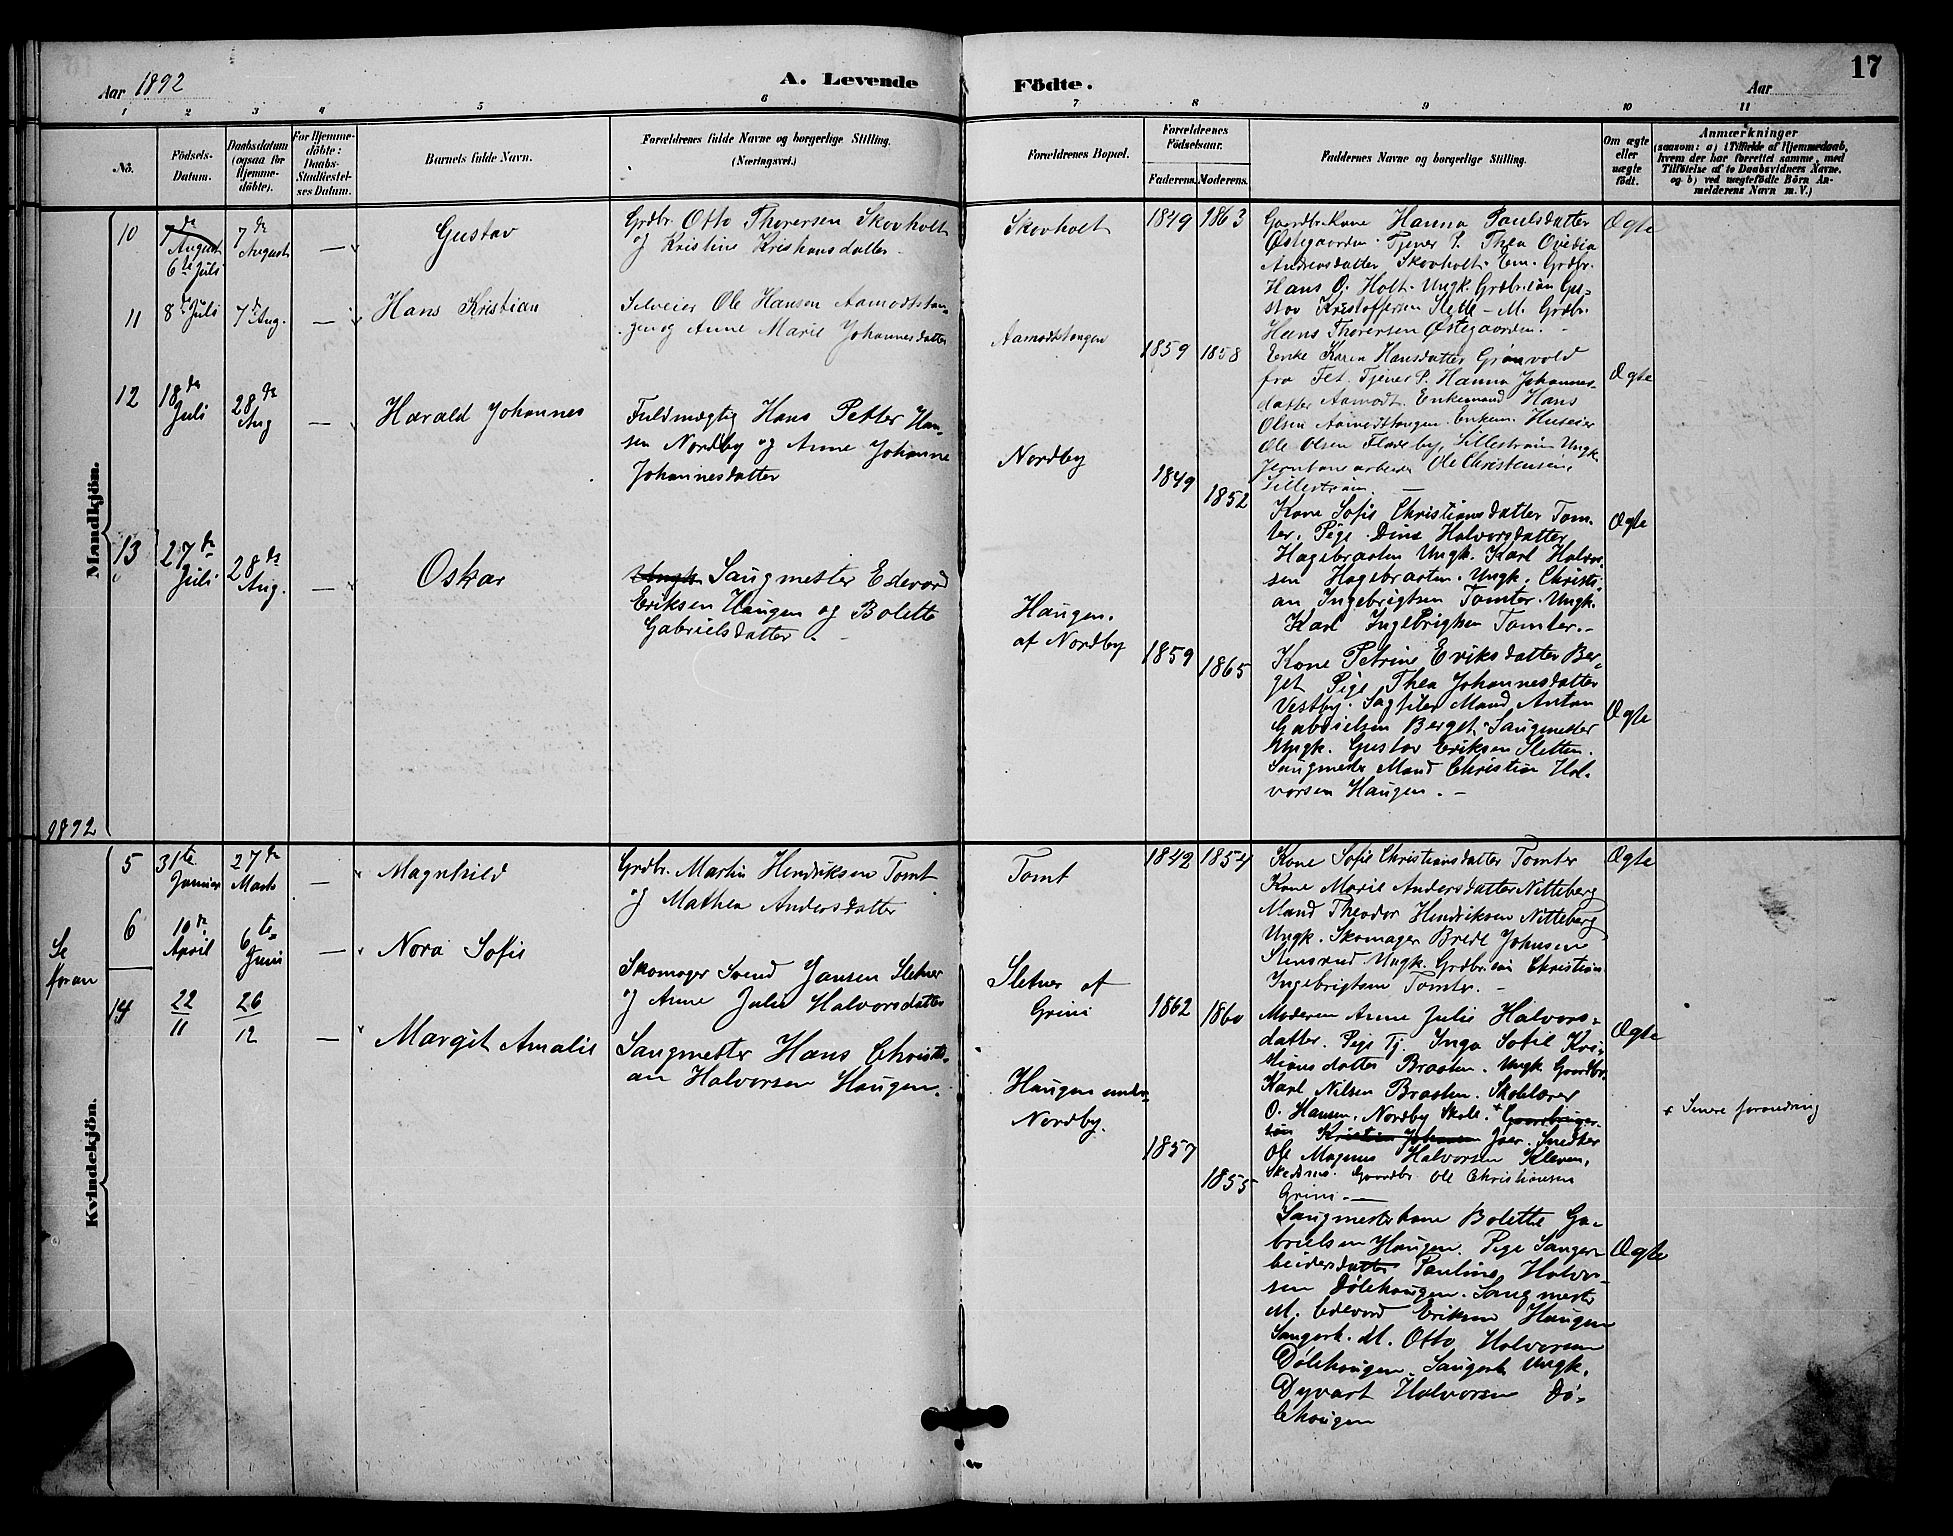 17
Aar 1892
A. Levende
Födte.
Aar
1 2 3 4 5 6 7 8 9 10 11
No.
Födsels-
Datum.
Daabsdatum
(ogsaa for
Hjemme-
döbte).
For Hjemme-
döbte:
Daabs-
Stadfæstel-
ses Datum.
Barnets fulde Navn.
Forældrenes fulde Navne og borgerlige Stilling.
(Næringsvei.)
Forældrenes Bopæl.
Forældrenes
Födselsaar.
Faderens. Moderens.
Faddernes Navne og borgerlige Stilling.
Om ægte
eller
uægte
födt.
Anmærkninger
(saasom: a) i Tilfælde af Hjemmedaab,
hvem der har forrettet samme, med
Tilföielse af to Daabsvidners Navne.
og b) ved uægtefödte Börn An-
melderens Navn m. V.)
Mandkjön.
10
7de
August
6te Juli
7de
August
—
Gustav
Grdbr. Otto Thorersen Skovholt
og Kristine Kristiansdatter
Skovholt
1849 1863
Gaardbr.kone Hanna Paulsdatter
Østegaarden. Tjener P. Thea Ovedia
Andersdatter Skovholt. Em. Grdbr.
Hans O. Holt. Ungk. Grdbr.søn Gu-
stav Kristoffersen Slette - M. Grdbr.
Hans Thorersen Østegaarden. -
Ægte
11
8de Juli
7de Aug.
—
Hans Kristian
Selveier Ole Hansen Aamodtstan-
gen og Anne Marie Johannesdatter
Aamodtstangen
1859 1858
Enke Karen Hansdatter Grønvold
fra Fet. Tjener P. Hanna Johannes-
datter Aamodt. Enkemand Hans
Olsen Aamodtstangen. Enkem. Huseier
Ole Olsen Fladeby, Lillestrøm Ungk.
Jernbanearbeider Ole Christensen,
Lillestrøm. —
Ægte
12
18de
Juli
28de
Aug
—
Harald Johannes
Fuldmægtig Hans Petter Han-
sen Nordby og Anne Johanne
Johannesdatter
Nordby
1849 1852
Kone Sofie Christiansdatter Tom-
ter. Pige Dina Halvorsdatter
Hagebraaten Ungk. Karl Halvor-
sen Hagebraaten. Ungk. Christi-
an Ingebrigtsen Tomter. Ungk.
Karl Ingebrigtsen Tomter.-
Ægte
13
27de
Juli
28de
Aug.
—
Oskar
Ungk. Saugmester Edevard
Eriksen Haugen og Bolette
Gabrielsdatter. -
Haugen.
af Nordby
1859 1865
Kone Petrine Eriksdatter Ber-
get Pige Thea Johannesdatter
Vestby. Sagfiler Mand Anton
Gabrielsen Berget. Saugmester
Ungk. Gustav Eriksen Sletten.
Saugmester Mand Christian Hal-
vorsen Haugen. -
Ægte
1892
Kvindekjön.
5
31te
Januar
27de
Marts
—
Magnhild
Grdbr. Martin Hendriksen Tomt
og Mathea Andersdatter
Tomt
1842 1854
Kone Sofie Christiansdatter Tomter
Kone Marie Andersdatter Nitteberg
Mand Theodor Hendriksen Nitteberg
Ungk. Skomager Brede Johnsen
Stensrud Ungk. Grdbr.søn Christian
Ingebrigtsen Tomter. -
Ægte
Se
foran
6
10de
April
6te
Juni
—
Nora Sofie
Skomager Svend Jansen Sletner
og Anne Julie Halvorsdatter
Sletner af
Grini
1862 1860
Moderen Anne Julie Halvors-
datter. Pige Tj. Inga Sofie Kri-
stiansdatter Braaten. Ungk Gaardbr.
Karl Nilsen Braaten. Skolelærer
O. Hansen, Nordby Skole. + Gaardbruger-
søn Kristian Johansen Jær. Snedker
Ole Magnus Halvorsen Kleven,
Skedsmo. Gaardbr. Ole Christiansen
Grini. —
Ægte
+ Senere forandring
14
22
11
26
12
—
Margit Amalie
Saugmester Hans Christi-
an Halvorsen Haugen.
Haugen under
Nordby.
1857 1855
Saugmesterkone Bolette Ga-
brielsen Haugen. Pige Saugar-
beidersdatter Pauline Halvor-
sen Dølehaugen. Saugmester
M. Edevard Eriksen Haugen
Saugarb. M. Otto Halvorsen
Dølehaugen. Saugarb. Ungk.
Dyvart Halvorsen Dø-
lehaugen
Ægte